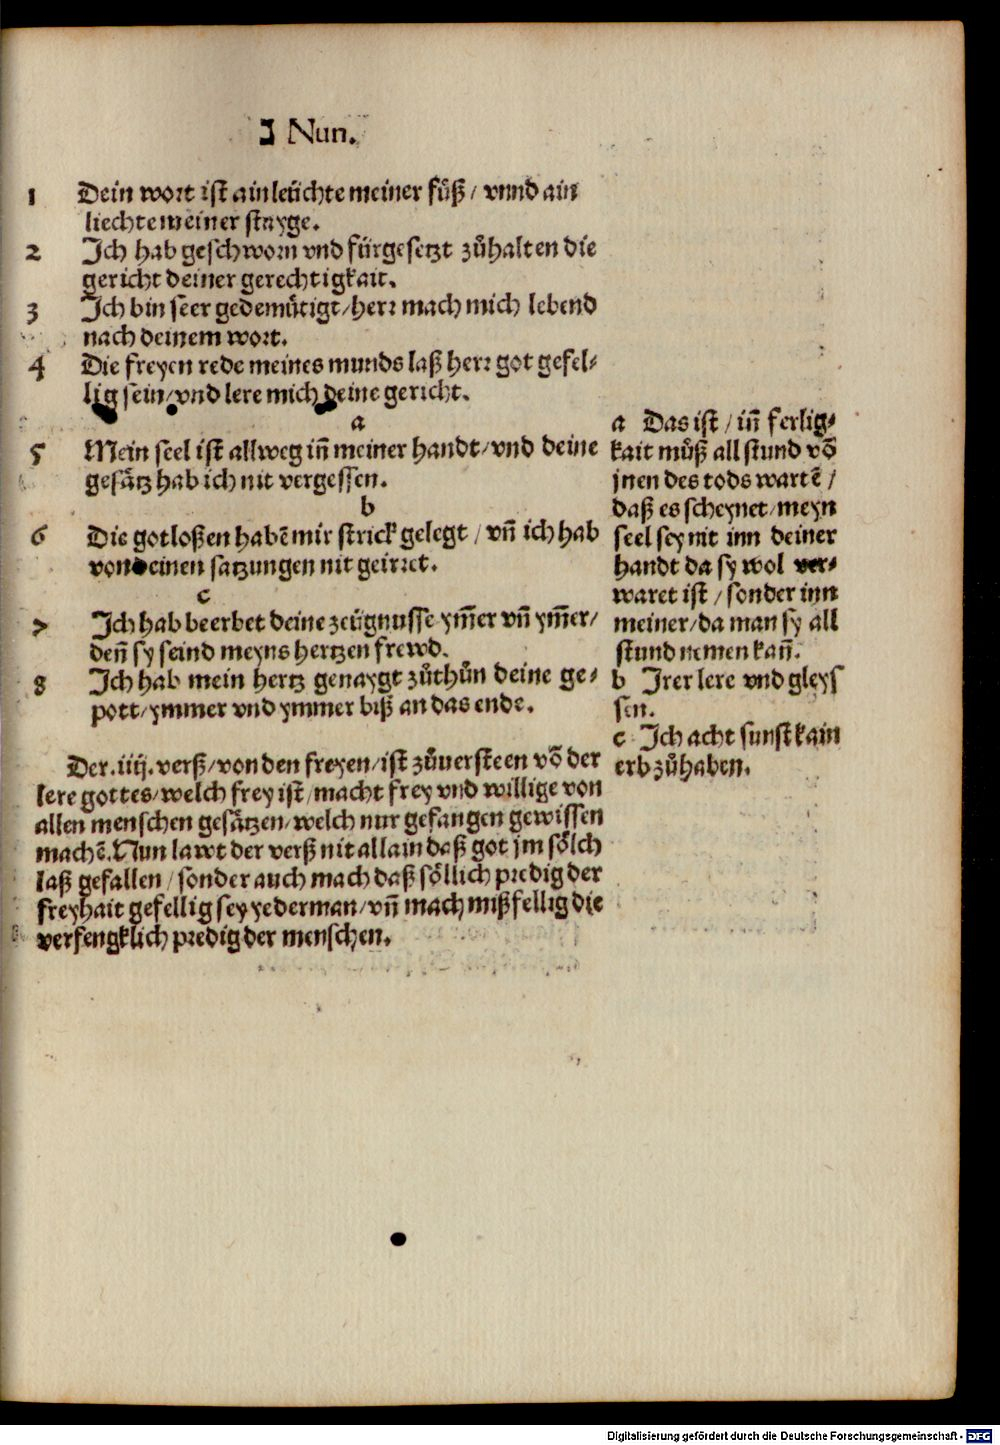 נ Nun.
1 Dein wort ist ain leüchte meiner fůß / vnnd ain
liechte meiner stayge.
2 Ich hab geschworn vnd fürgesetzt zůhalten die
gericht deiner gerechtigkait.
3 Ich bin seer gedemütigt/herr mach mich lebend
nach deinem wort.
4 Die freyen rede meines munds laß herr got gefel-
lig sein/vnd lere mich deine gericht.
a
5 Mein seel ist allweg inn̄ meiner handt/vnd deine
gesätz hab ich nit vergessen.
b
6 Die gotloßen habē mir strick gelegt / vn̄ ich hab
von deinen satzungen nit geirret.
c
7 Ich hab beerbet deine zeügnusse ym̄er vn̄ ym̄er/
den̄ sy seind meyns hertzen frewd.
8 Ich hab mein hertz genaygt zůthůn deine ge-
pott/ymmer vnd ymmer biß an das ende.
Der .iiij. verß/von den freyen/ist zůuersteen võ der
lere gottes/welch frey ist/macht frey vnd willige von
allen menschen gesätzen/welch nur gefangen gewissen
machē. Nun lawt der verß nit allain daß got jm sölch
laß gefallen / sonder auch mach daß söllich predig der
freyhait gefellig sey yederman/vn̄ mach mißfellig die
verfengklich predig der menschen.
a Das ist / in̄ ferlig-
kait můß all stund võ
jnen des tods wartē /
daß es scheynet/meyn
seel sey nit inn deiner
handt da sy wol ver-
waret ist / sonder inn
meiner/da man sy all
stund nemen kan̄.
b Irer lere vnd gleys
sen.
c Ich acht sunst kain
erb zůhaben.
Digitalisierung gefördert durch die Deutsche Forschungsgemeinschaft - DFG